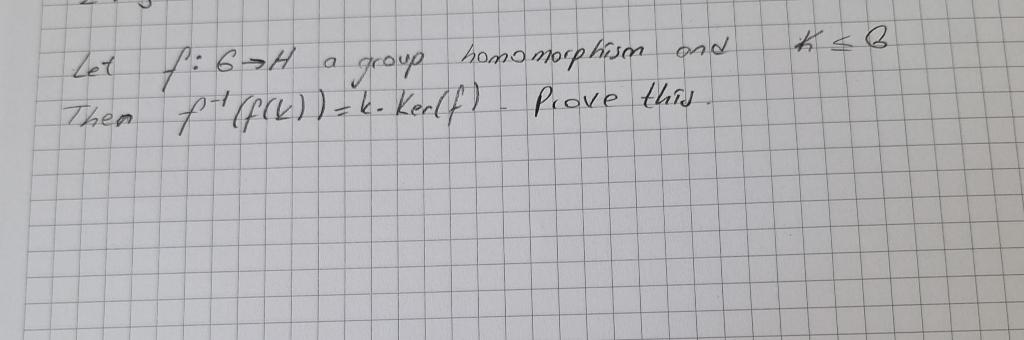 Let f: G→H a group homomorphism and K ≤ G
Then f⁻¹(f(K)) = K · Ker(f). Prove this.